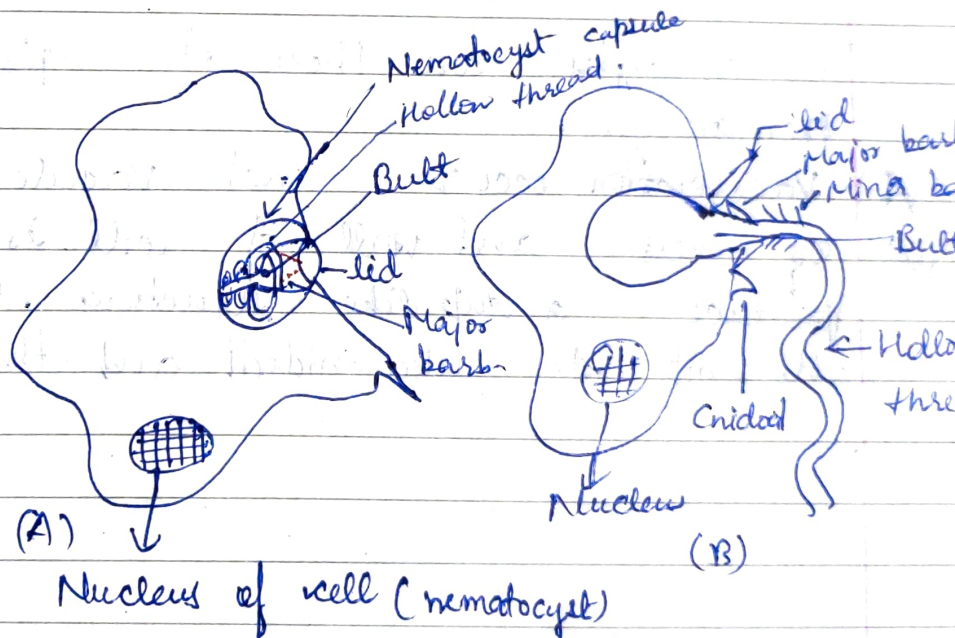 Nematocyst capsule
Hollow thread.
Butt
lid
Major
barb
(A)
Nucleus of cell (nematocyst)
lid
Major barb
Minor ba
Butt
Hollo
thre
Cnidoal
Nucleus
(B)